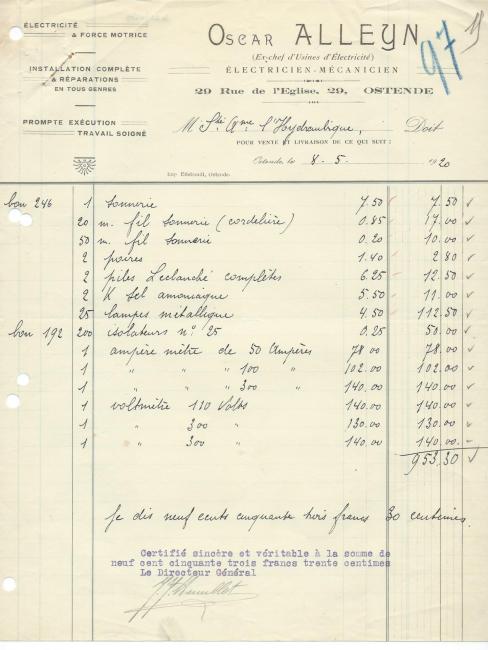 ÉLECTRICITÉ
& FORCE MOTRICE
INSTALLATION COMPLÈTE
& RÉPARATIONS
EN TOUS GENRES
PROMPTE EXÉCUTION
TRAVAIL SOIGNÉ
OSCAR ALLEYN
(Ex-chef d'Usines d'Électricité)
ÉLECTRICIEN-MÉCANICIEN
29 Rue de l'Eglise, 29, OSTENDE
97
M Sté Ame l'Hydraulique, Doit
POUR VENTE ET LIVRAISON DE CE QUI SUIT :
Ostende, le 8. 5. 1920
Imp Elleboudt, Ostende.
bon 246 1 sonnerie 7.50 7.50
20 m. fil sonnerie (cordelière) 0.85 17.00
50 m. fil sonnerie 0.20 10.00
2 poires 1.40 2.80
2 piles Leclanché complètes 6.25 12.50
2 K sel amoniaque 5.50 11.00
25 lampes métallique 4.50 112.50
bon 192 200 isolateurs n° 25 0.25 50.00
1 ampère mètre de 50 Ampères 78.00 78.00
1 " " " 100 " 102.00 102.00
1 " " " 300 " 140.00 140.00
1 voltmètre 110 Volts 140.00 140.00
1 " 300 " 130.00 130.00
1 " 300 " 140.00 140.00
953,30
Je dis neuf cents cinquante trois francs 30 centimes.
Certifié sincère et véritable à la somme de
neuf cent cinquante trois francs trente centimes
Le Directeur Général